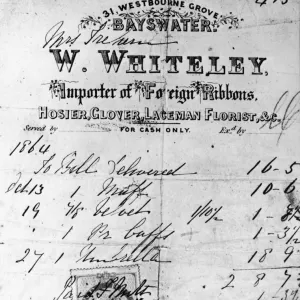 31, WESTBOURNE GROVE
BAYSWATER.
W. WHITELEY,
Importer of Foreign Ribbons,
HOSIER, GLOVER, LACEMAN FLORIST, &c.
Served by FOR CASH ONLY. Exd. by
1864
To Bill Delivered 16-5
Oct 13 1 Muff 10-6
19 7/8 Velvet 1/10½ 1-
1 Pr Cuffs 1-3½
27 1 Umbrella 18 9
2 8 7
Paid